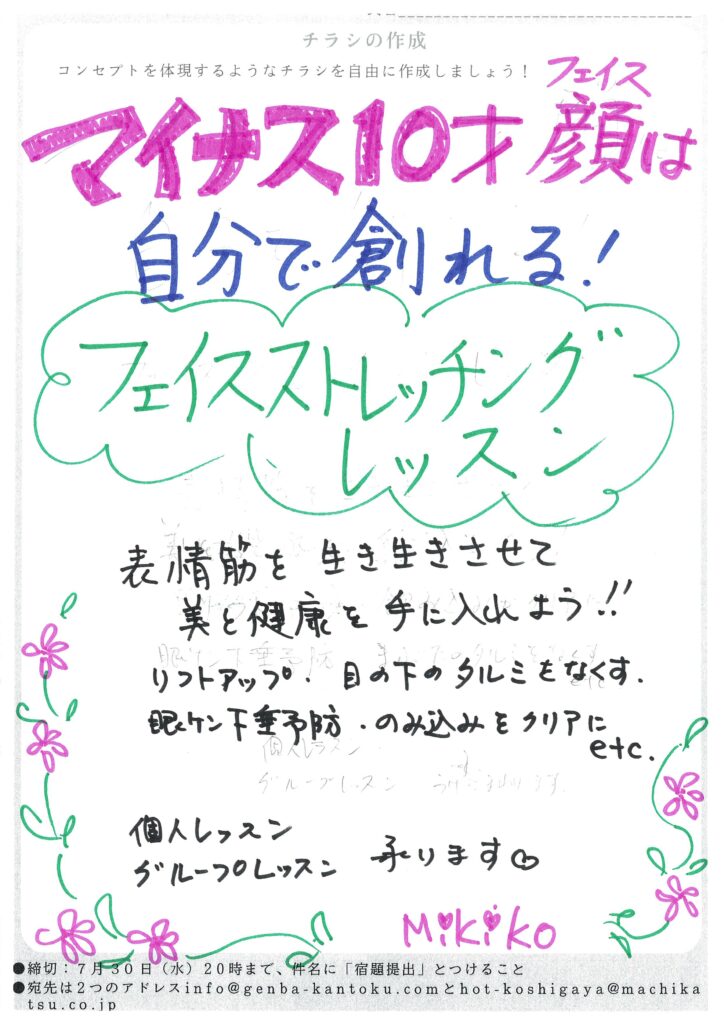 チラシの作成
コンセプトを体現するようなチラシを自由に作成しましょう！
フェイス
マイナス10才顔は
自分で創れる！
フェイスストレッチング
レッスン
表情筋を生き生きさせて
美と健康を手に入れよう!!
リフトアップ・目の下のタルミをなくす・
眼ケン下垂予防・のみ込みをクリアに
etc.
個人レッスン
グループレッスン 承ります
MiKiKo
●締切：7月30日（水）20時まで、件名に「宿題提出」とつけること
●宛先は2つのアドレスinfo@genba-kantoku.comとhot-koshigaya@machika
tsu.co.jp